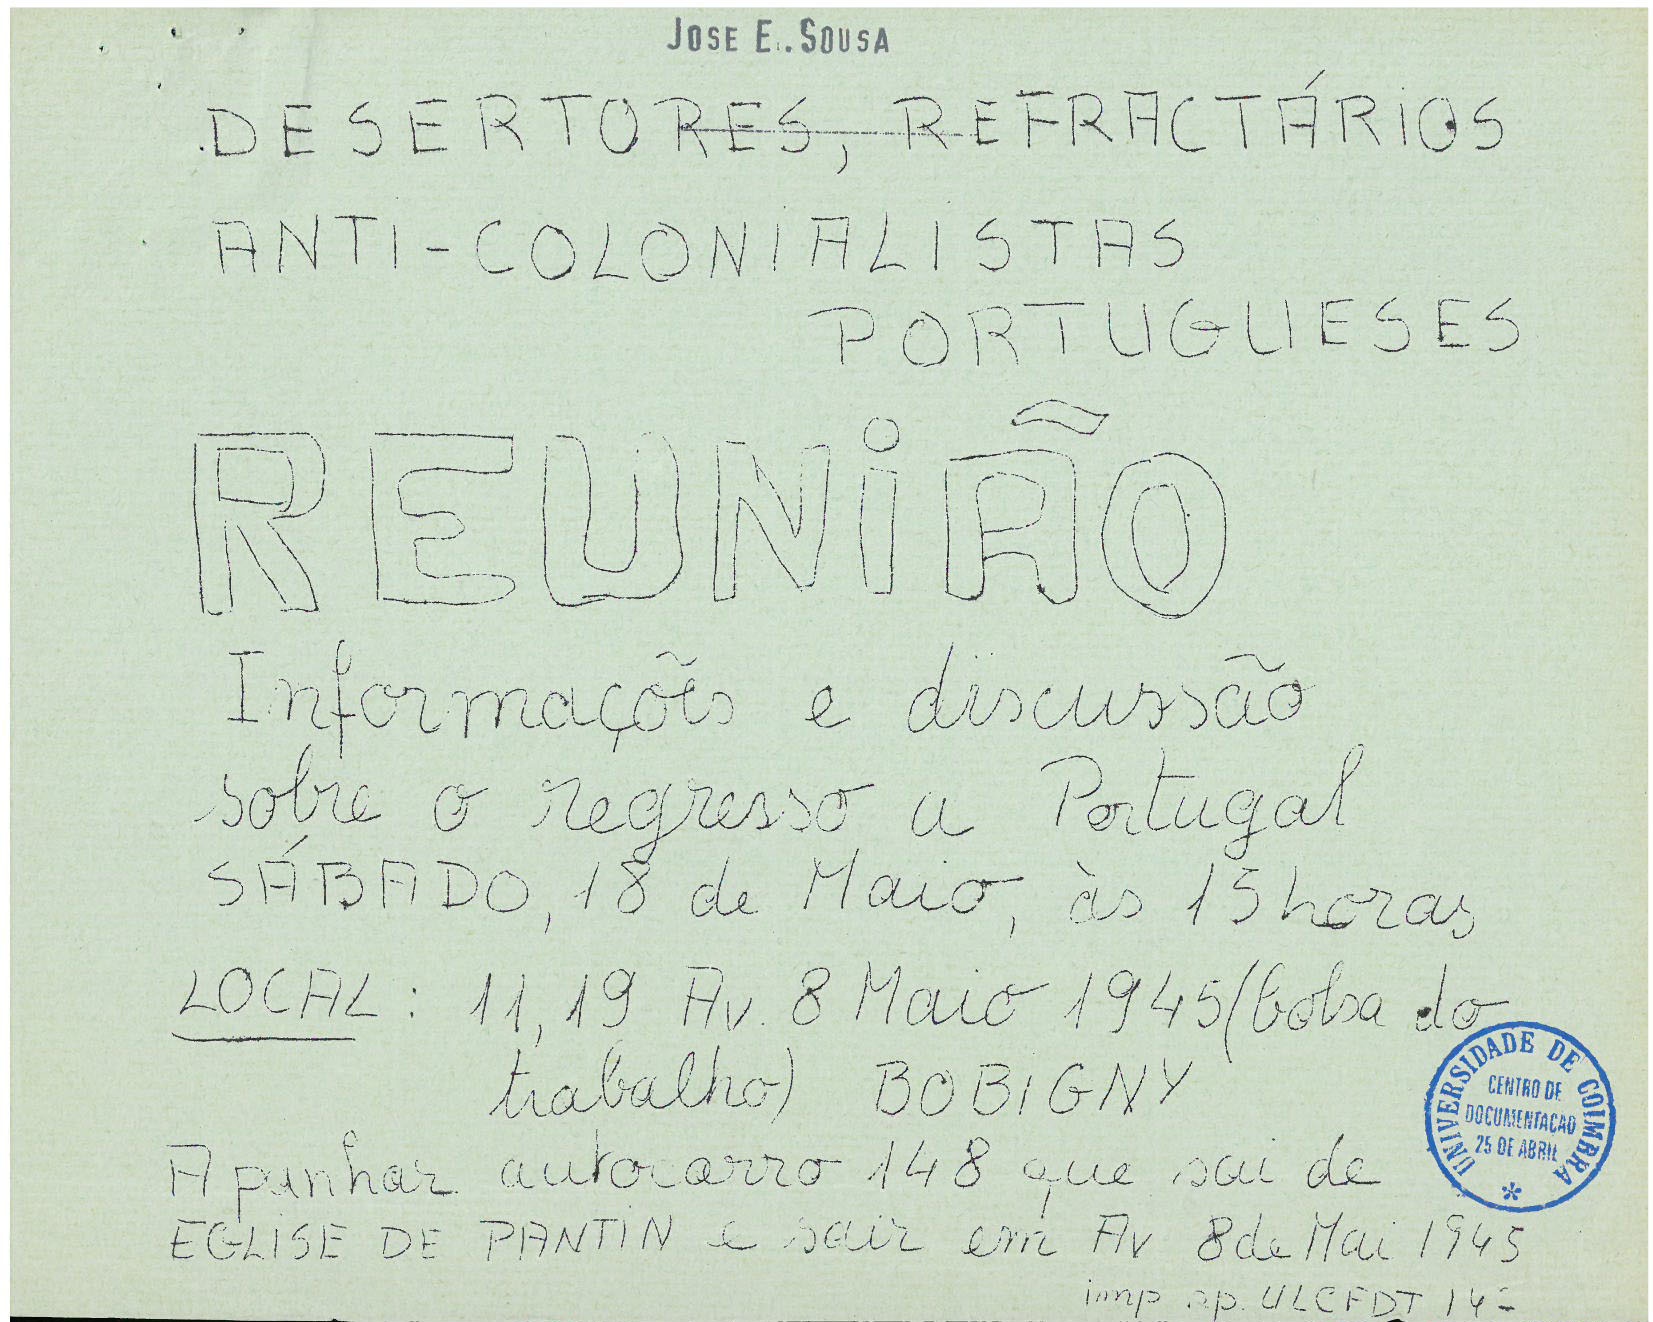 JOSE E. SOUSA
DESERTORES, REFRACTÁRIOS
ANTI-COLONIALISTAS
PORTUGUESES
REUNIÃO
Informações e discussão
sobre o regresso a Portugal
SÁBADO, 18 de Maio, às 15 horas
LOCAL: 11, 19 Av. 8 Maio 1945 (bolsa do
trabalho) BOBIGNY
UNIVERSIDADE DE COIMBRA
CENTRO DE
DOCUMENTACAO
25 DE ABRIL
Apanhar autocarro 148 que sai de
EGLISE DE PANTIN e sair em Av 8 de Mai 1945
imp sp. ULCFDT 14-